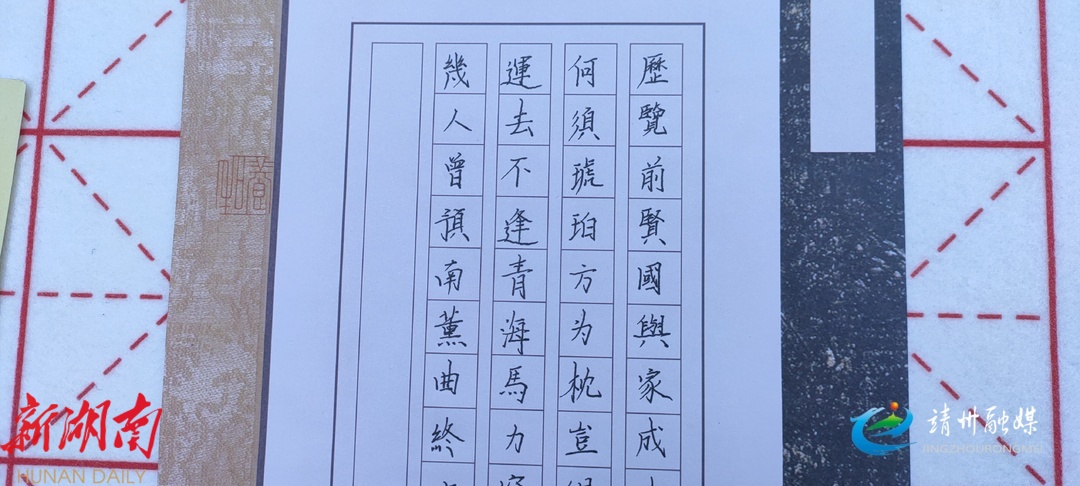 歷覽前賢國與家成
何須琥珀方为枕豈
運去不逢青海馬力
幾人曾預南薰曲終
新湖南
HUNAN DAILY
靖州融媒
JINGZHOURONGMEI